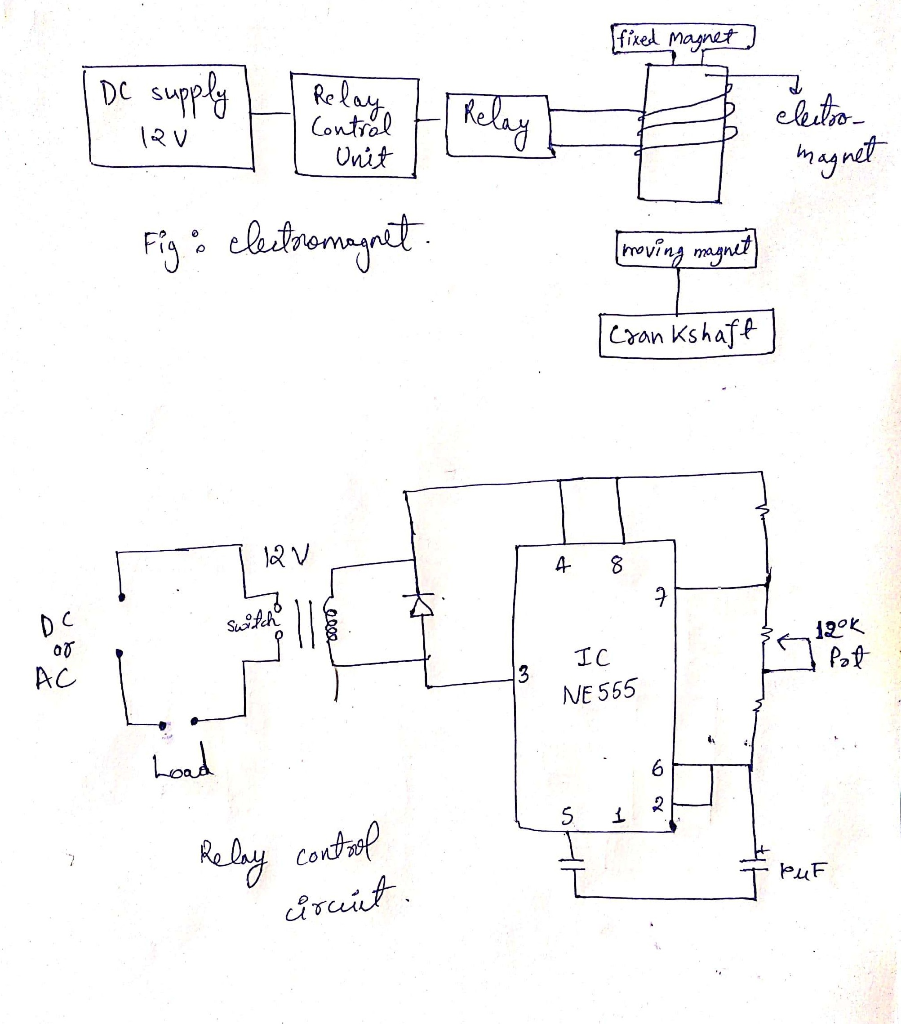 fixed Magnet
DC supply
12 V
Relay
Control
Unit
Relay
electro-
magnet
Fig: electromagnet.
moving magnet
Crankshaft
12 V
DC
or
AC
switch
Load
4 8
7
3
IC
NE555
6
2
5 1
120K
Pot
+
Relay control
circuit.